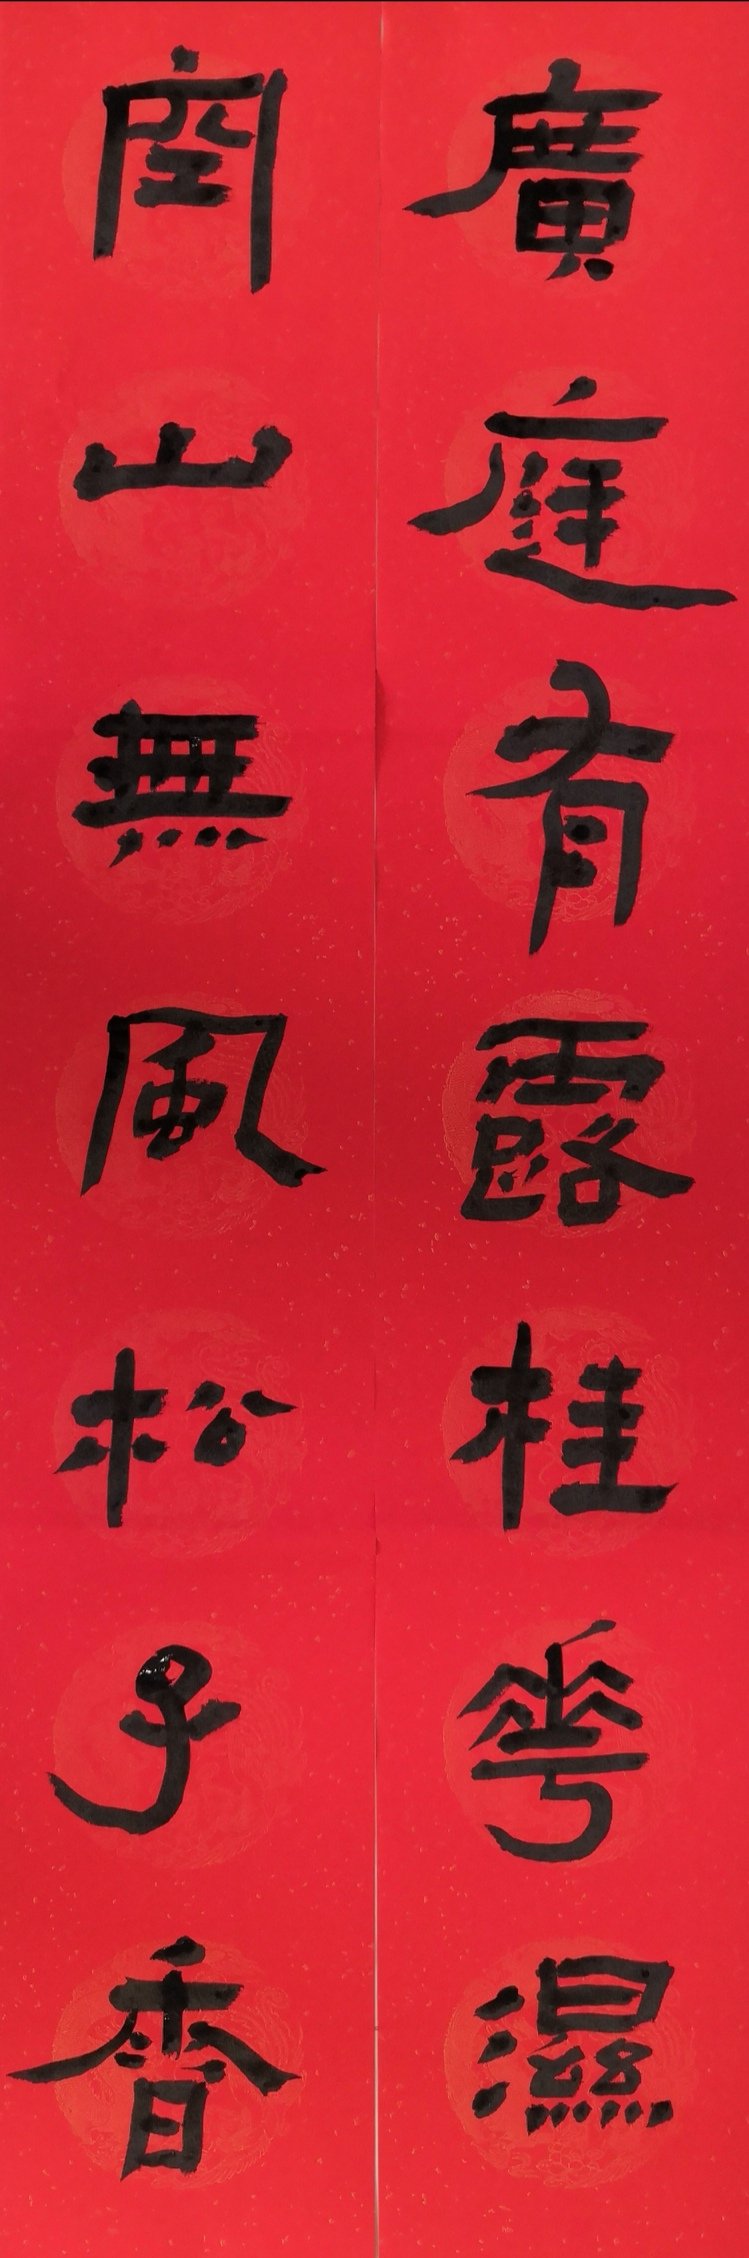 廣庭有露桂華濕
空山無風松子香